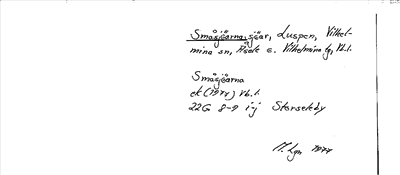 Småsjöarna, sjöar, Luspen, Vilhel-
mina sn, Åsele o. Vilhelmina tg, Vb.l.
Småsjöarna
ek (1977) Vb.l.
22G 8-9 i-j Storseleby
M. Lgn 1977